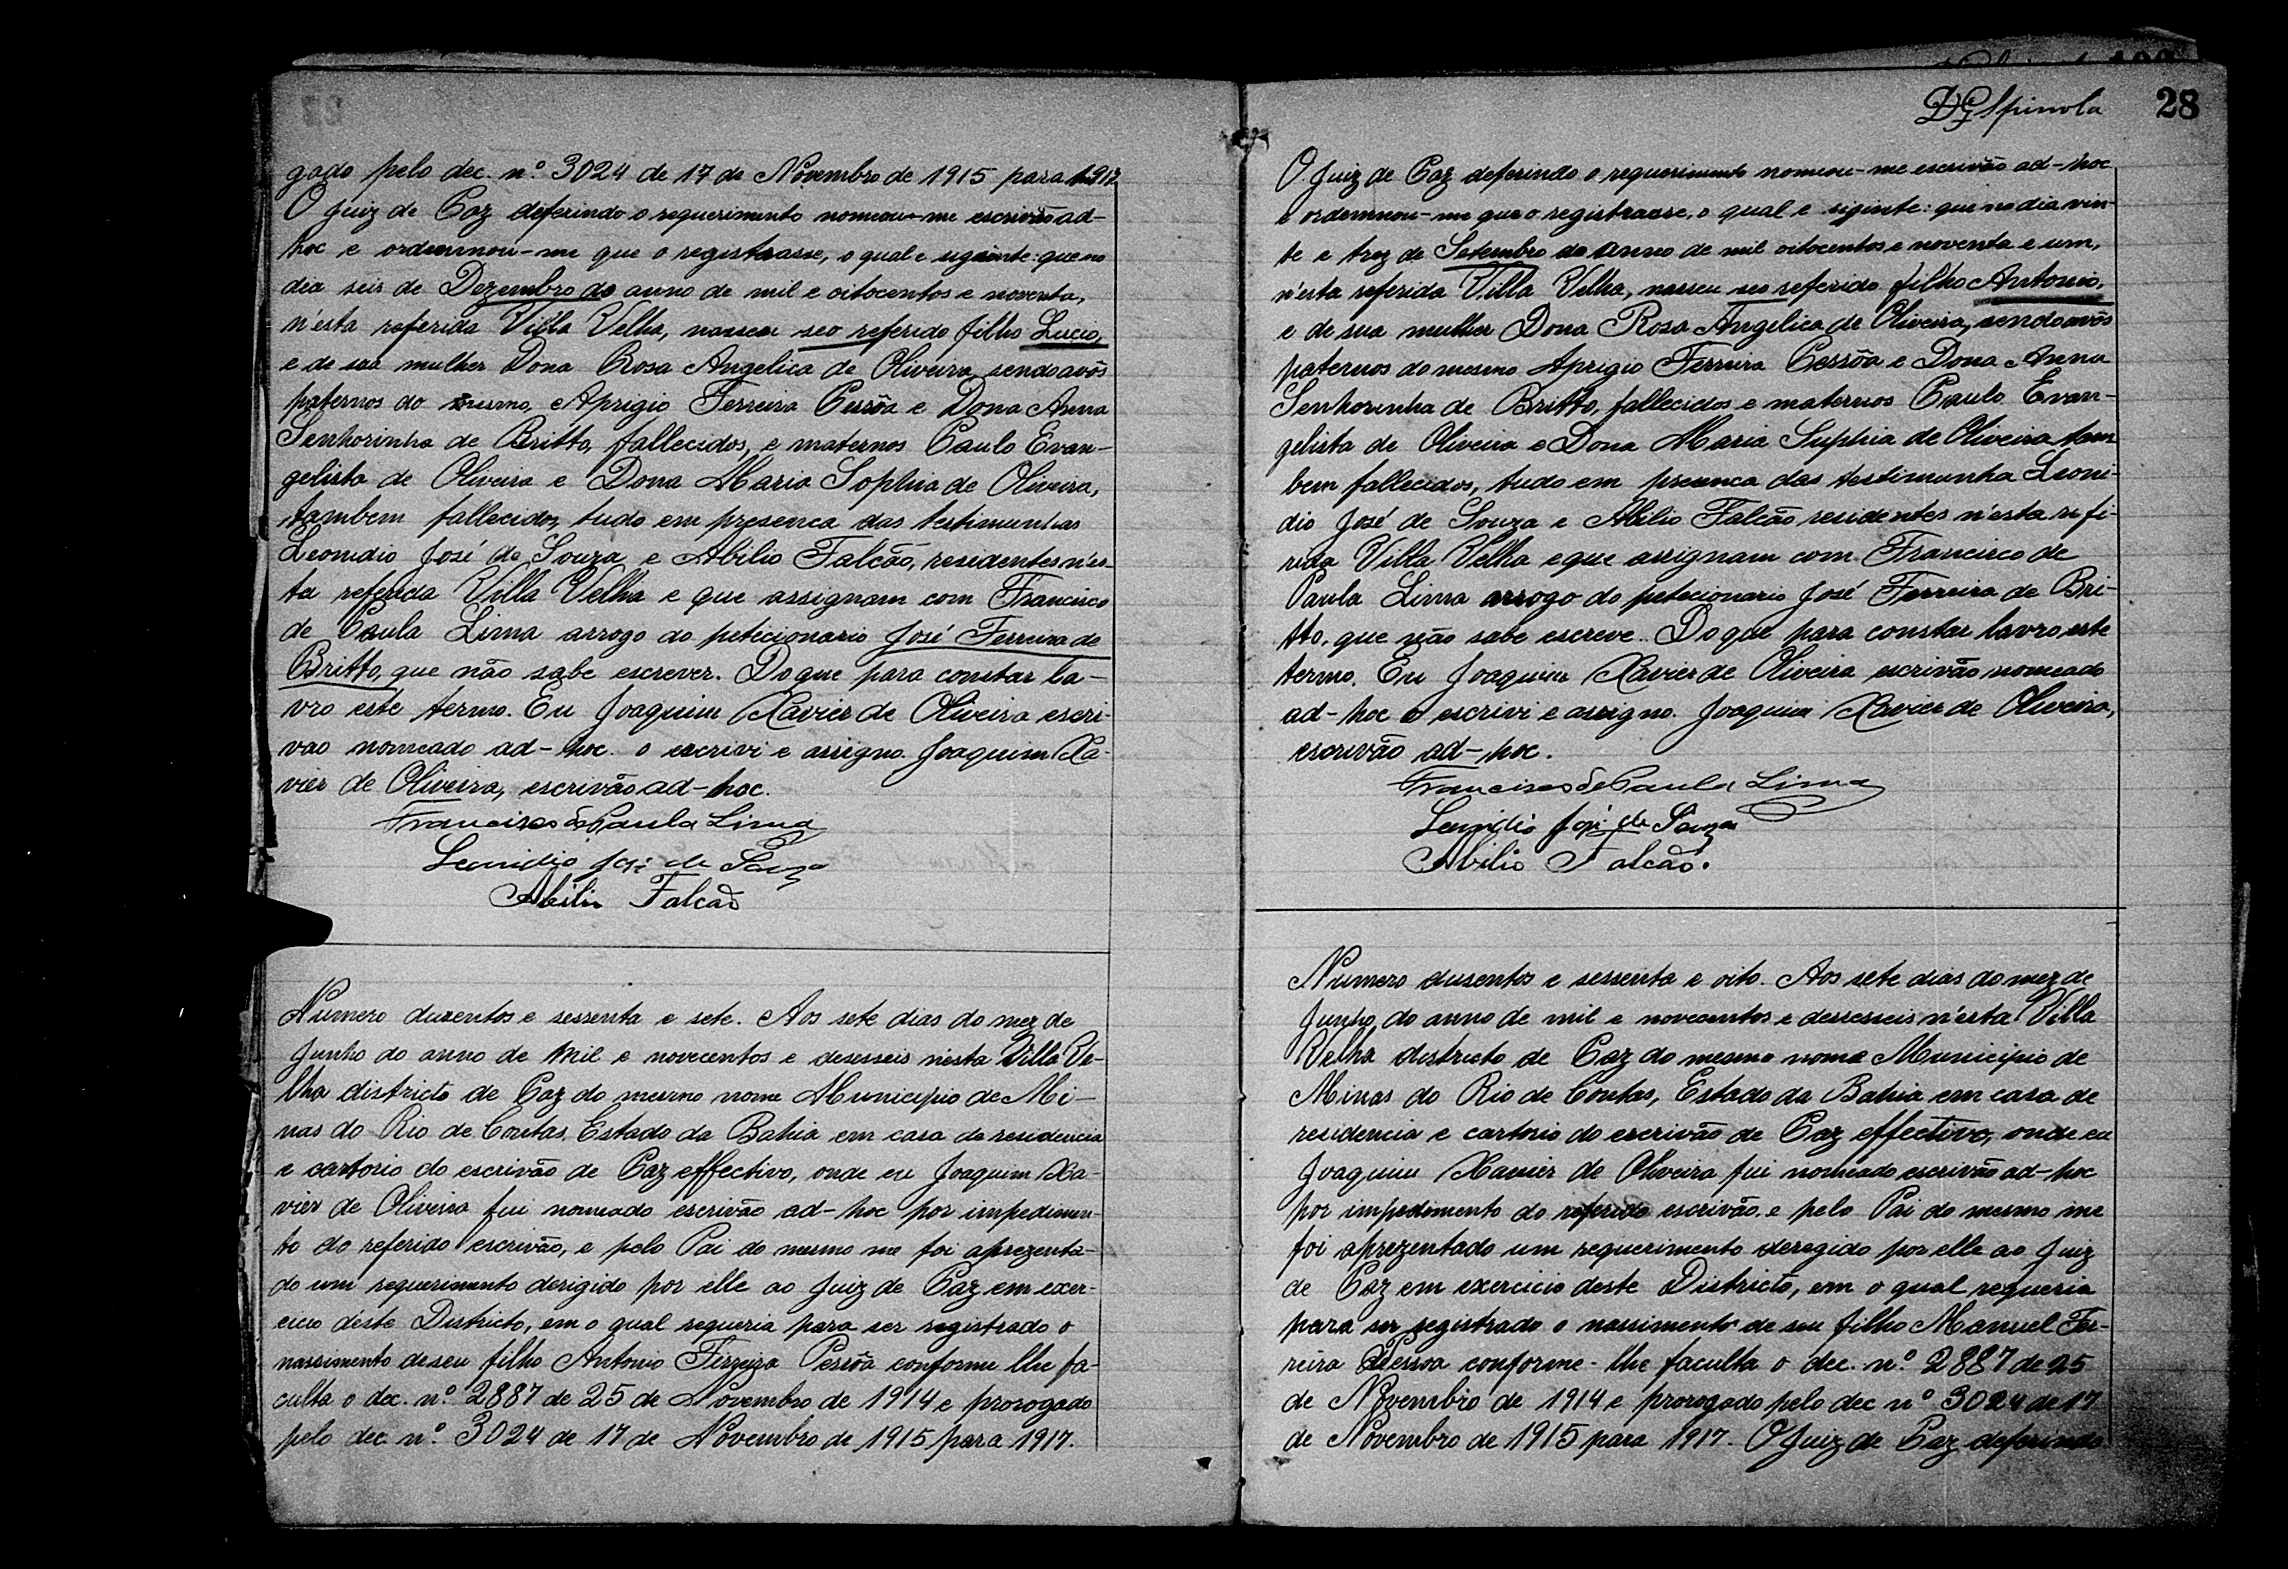 gado pelo dec. nº 3024 de 17 de Novembro de 1915 para 1917.
O Juiz de Paz deferindo o requerimento nomeou-me escrivão ad-
hoc e ordemnou-me que o registrasse, o qual e siguinte: que no
dia seis de Dezembro do anno de mil e oitocentos e noventa,
n'esta referida Villa Velha, nasceu seo referido filho Lucio,
e de sua mulher Dona Rosa Angelica de Oliveira, sendo avôs
paternos do mesmo, Aprigio Ferreira Pessôa e Dona Anna
Senhorinha de Britto, fallecidos, e maternos Paulo Evan-
gelista de Oliveira e Dona Maria Sophia de Oliveira,
tambem fallecidos, tudo em presenca das testimunhas
Leonidio José de Souza e Abilio Falcão, residentes n'es-
ta referida Villa Velha e que assignam com Francisco
de Paula Lima arrogo do peticionario José Ferreira de
Britto, que não sabe escrever. Do que para constar la-
vro este termo. Eu Joaquim Xavier de Oliveira escri-
vao nomeado ad-hoc. o escrivi e assigno. Joaquim Xa-
vier de Oliveira, escrivão ad-hoc.
Francisco de Paula Lima
Leonidio José de Souza
Abilio Falcão
Numero duzentos e sessenta e sete. Aos sete dias do mez de
Junho do anno de mil e novecentos e deseseis n'esta Villa Ve-
lha districto de Paz do mesmo nome Municipio de Mi-
nas do Rio de Contas, Estado da Bahia em casa da residencia
e cartorio do escrivão de Paz effectivo, onde eu Joaquim Xa-
vier de Oliveira fui nomeado escrivão ad-hoc por impedimen-
to do referido escrivão, e pelo Pai do mesmo me foi aprezenta-
do um requerimento derigido por elle ao Juiz de Paz em exer-
cicio déste Districto, em o qual requeria para ser registrado o
nassimento de seu filho Antonio Ferreira Pessôa conforme lhe fa-
culta o dec. nº 2887 de 25 de Novembro de 1914 e prorogado
pelo dec. nº 3024 de 17 de Novembro de 1915 para 1917.
Spinola 28
O Juiz de Paz deferindo o requerimento nomeou-me escrivão ad-hoc
e ordemnou-me que o registrasse, o qual e siginte: que no dia vin-
te e trez de Setembro do anno de mil oitocentos e noventa e um,
n'esta referida Villa Velha, nasceu seo referido filho Antonio,
e de sua mulher Dona Rosa Angelica de Oliveira, sendo avôs
paternos do mesmo Aprigio Ferreira Pessôa e Dona Anna
Senhorinha de Britto, fallecidos e maternos Paulo Evan-
gelista de Oliveira e Dona Maria Suphia de Oliveira tam
bem fallecidos, tudo em presenca das testimunha Leoni-
dio José de Souza e Abilio Falcão residentes n'esta refi-
rida Villa Velha e que assignam com Francisco de
Paula Lima arrogo do peticionario José Ferreira de Bri-
tto, que não sabe escreve. Do que para constar lavro este
termo. Eu Joaquim Xavier de Oliveira escrivão nomeado
ad-hoc o escrivi e assigno. Joaquim Xavier de Oliveira,
escrivão ad-hoc.
Francisco de Paula Lima
Leonidio José de Souza
Abilio Falcão.
Numero dusentos e sessenta e oito. Aos sete dias do mez de
Junho do anno de mil e novecentos e dessesseis n'esta Villa
Velha districto de Paz do mesmo nome Municipio de
Minas do Rio de Contas, Estado da Bahia em casa de
residencia e cartorio do escrivão de Paz effectivo, onde eu
Joaquim Xavier de Oliveira fui nomeado escrivão ad-hoc
por impedimento do referido escrivão, e pelo Pai do mesmo me
foi aprezentado um requerimento deregido por elle ao Juiz
de Paz em exercicio deste Districto, em o qual requeria
para ser registrado o nassimento de seu filho Manuel Fer-
reira Pessoa conforme-lhe faculta o dec. nº 2887 de 25
de Novembro de 1914 e prorogado pelo dec nº 3024 de 17
de Novembro de 1915 para 1917. O Juiz de Paz deferindo